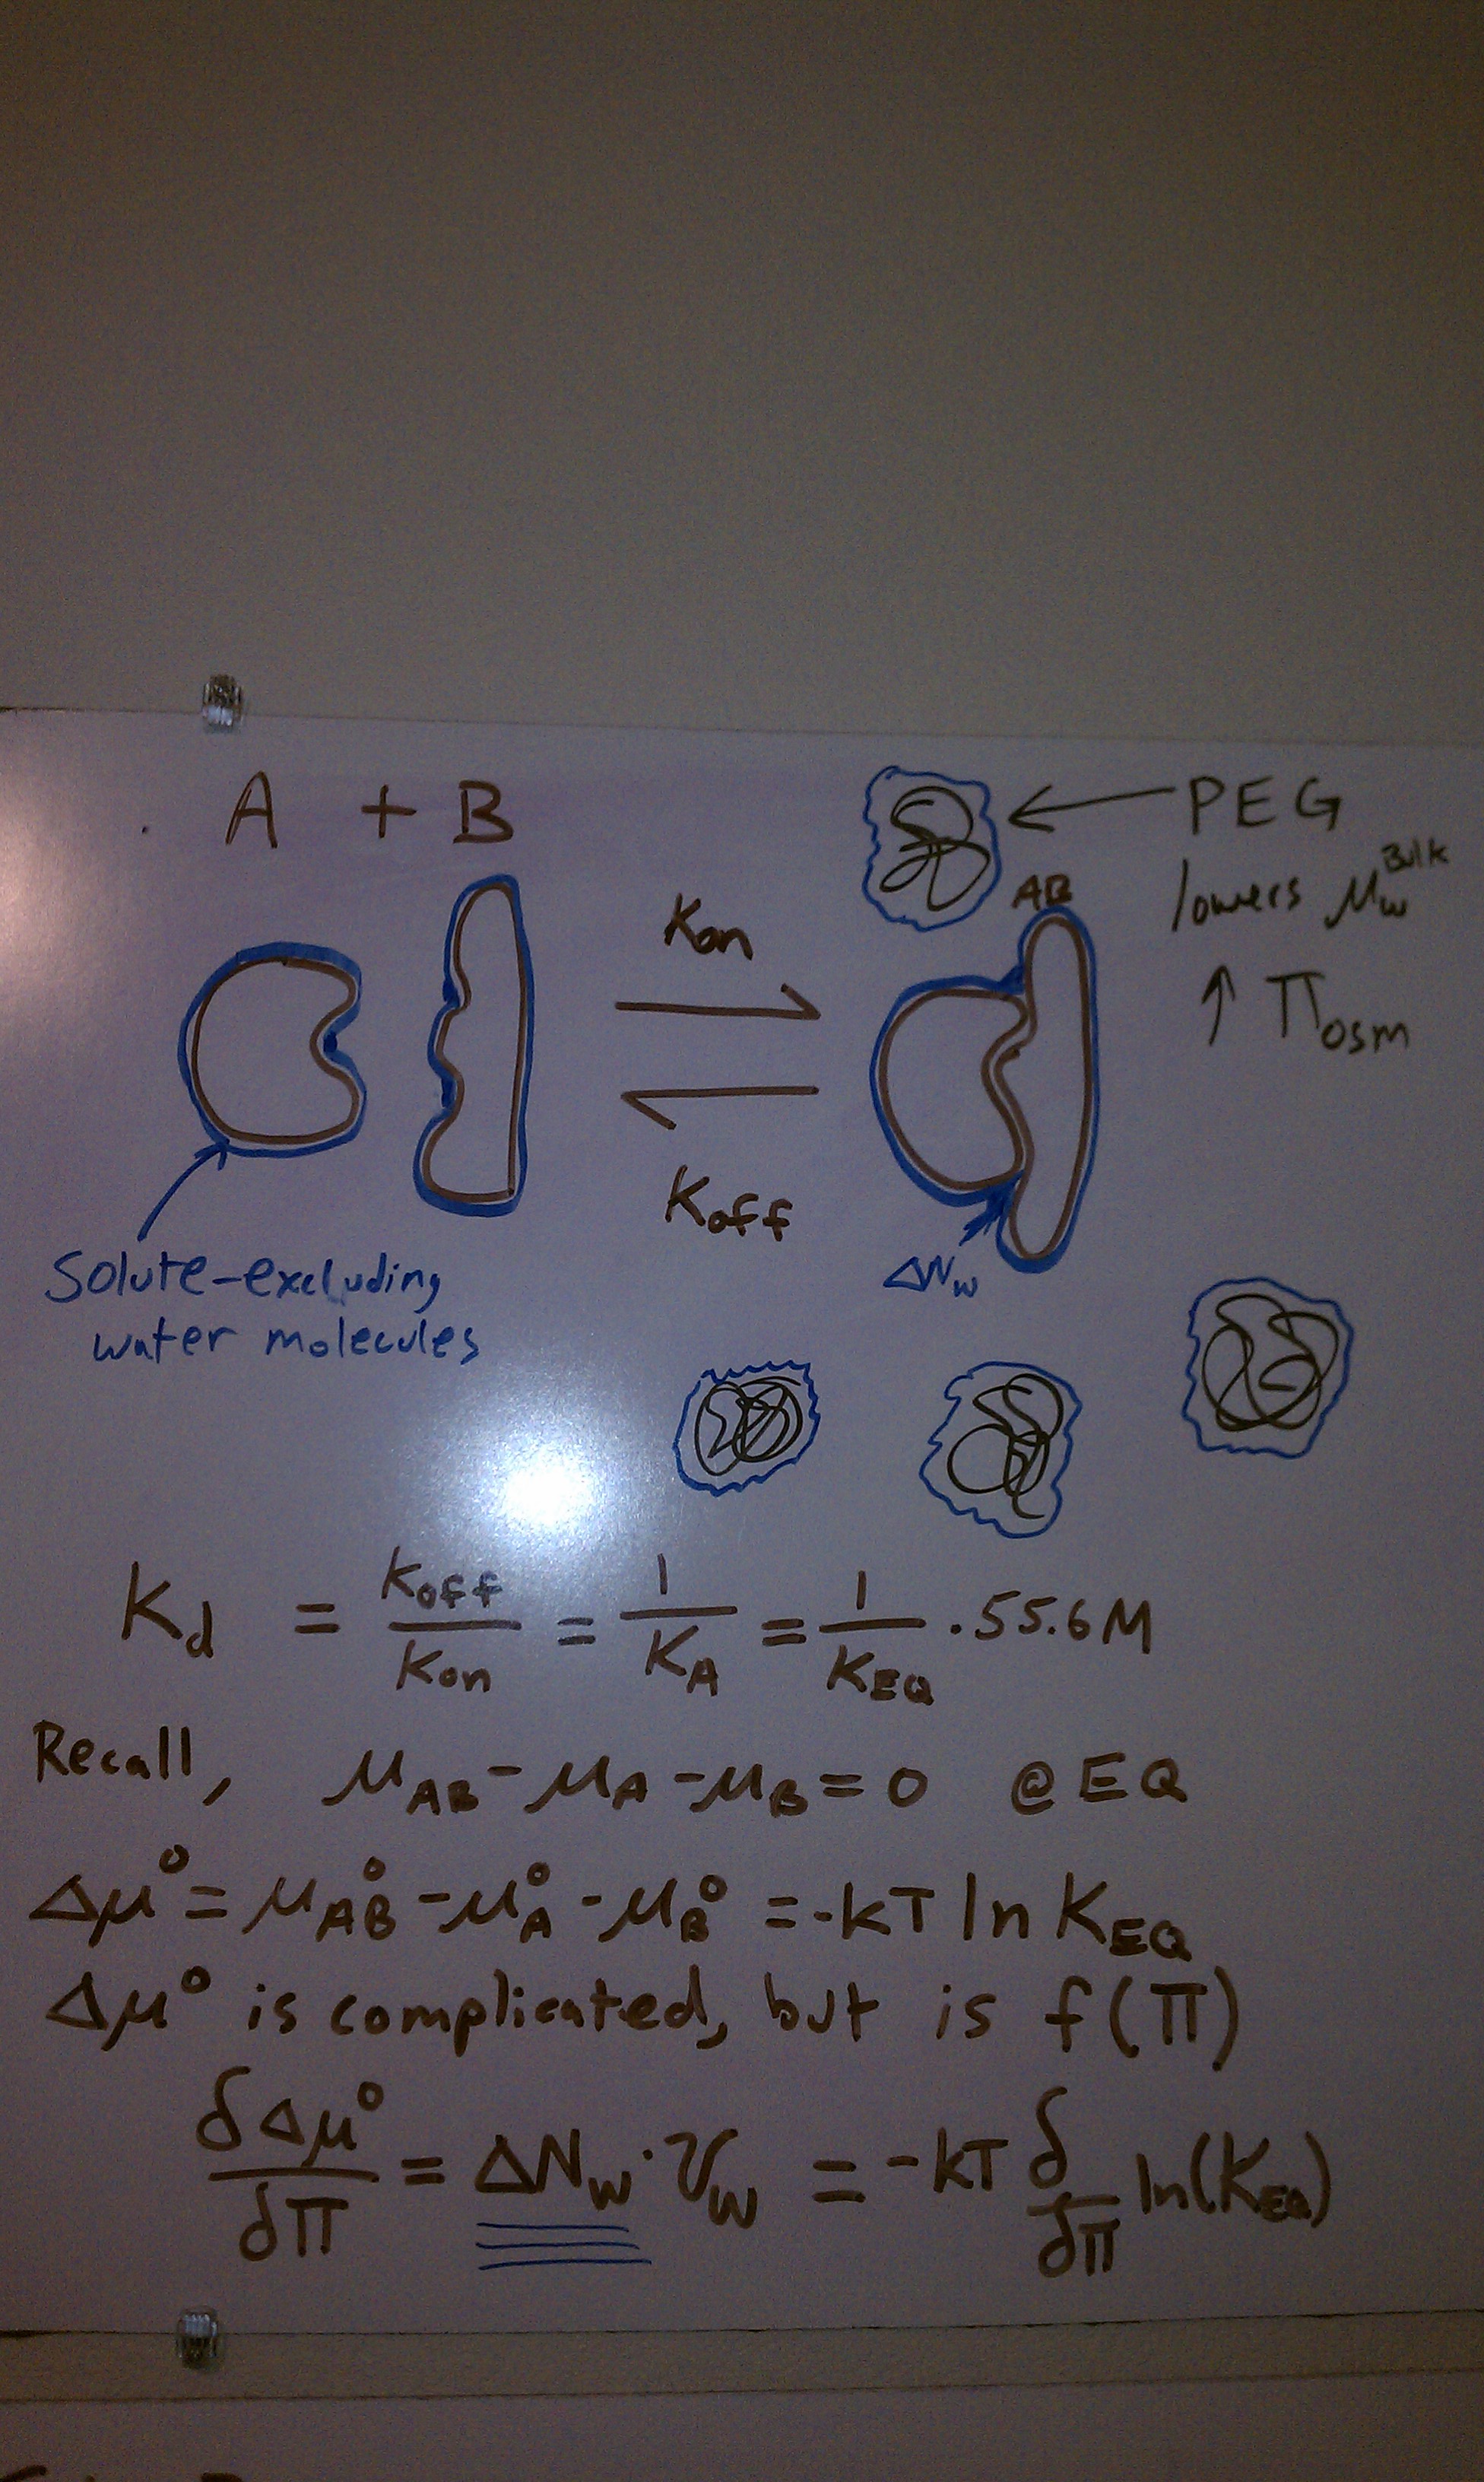 A + B
PEG
lowers μ_w^Bulk
↑ Π_osm
AB
Kon
Koff
ΔN_w
Solute-excluding
water molecules
K_d = Koff/Kon = 1/K_A = 1/K_EQ · 55.6M
Recall, μ_AB - μ_A - μ_B = 0 @ EQ
Δμ° = μ°_AB - μ°_A - μ°_B = -kT ln K_EQ
Δμ° is complicated, but is f(Π)
δΔμ°/δΠ = ΔN_w · v_w = -kT δ/δΠ ln(K_EQ)